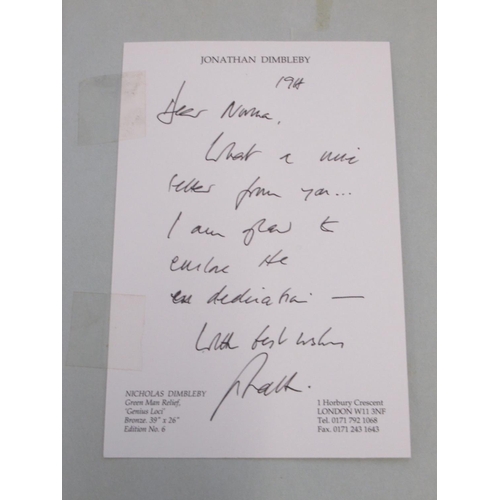 JONATHAN DIMBLEBY
19th
Dear Norma,
What a nice
letter from you...
I am glad to
enclose the
dedication —
With best wishes
NICHOLAS DIMBLEBY
Green Man Relief,
'Genius Loci'
Bronze. 39" x 26"
Edition No. 6
1 Horbury Crescent
LONDON W11 3NF
Tel. 0171 792 1068
Fax. 0171 243 1643